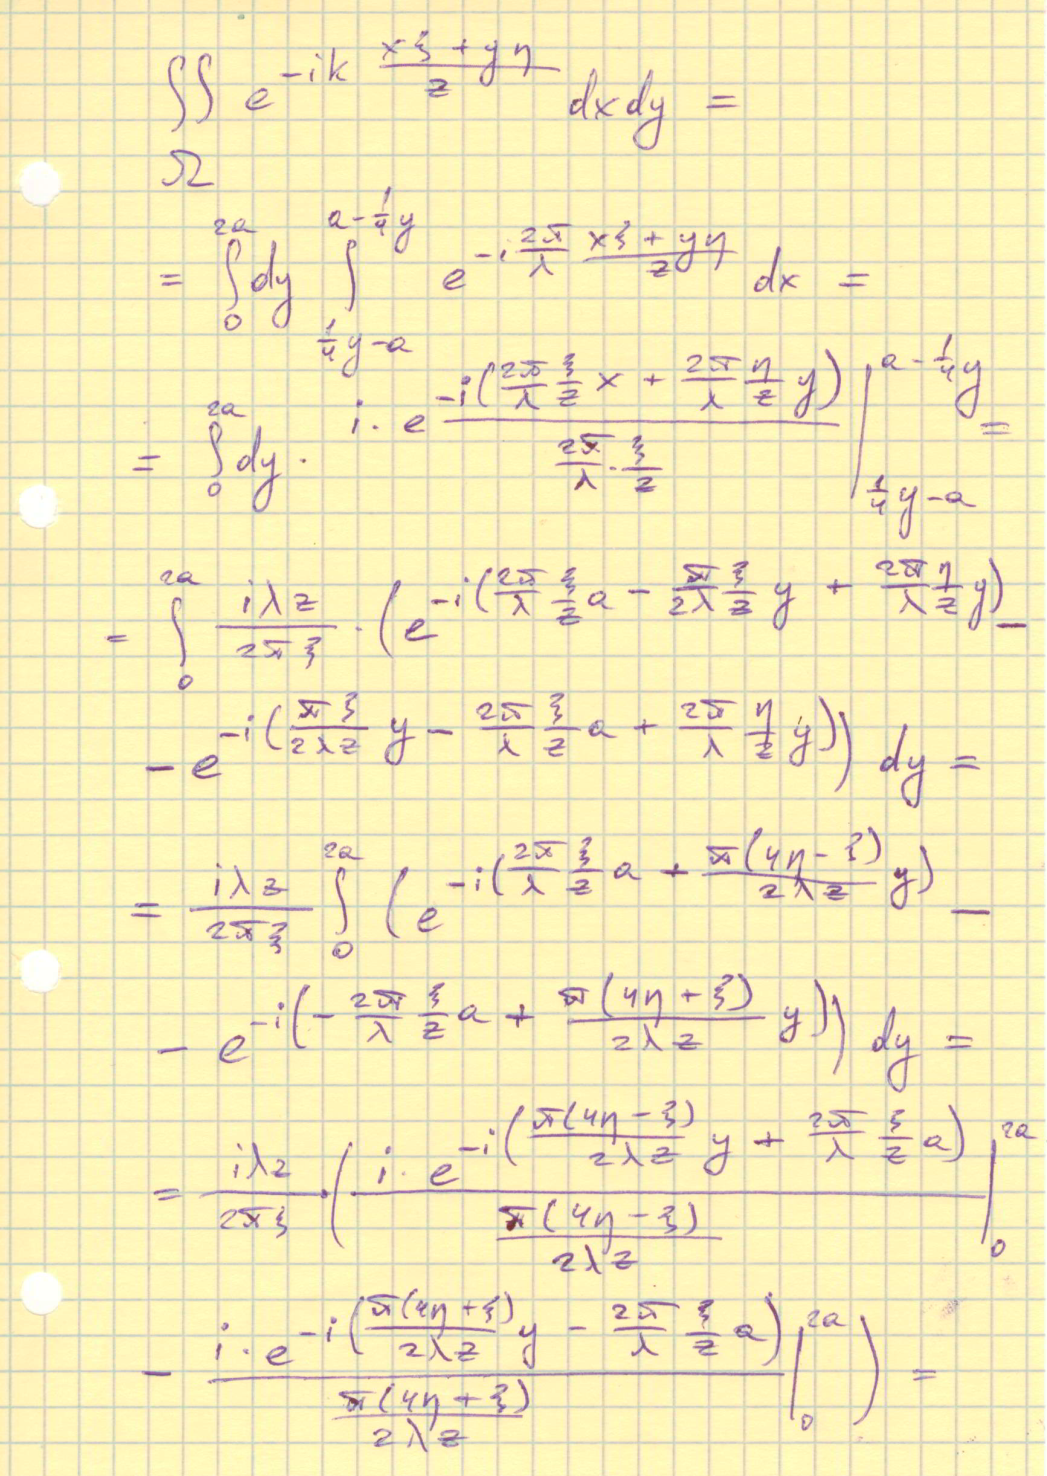 ∬ e^{-ik (xξ + yη)/z} dx dy =
Ω
= ∫_0^{2a} dy ∫_{¼y-a}^{a-¼y} e^{-i (2π/λ) (xξ + yη)/z} dx =
= ∫_0^{2a} dy · (i · e^{-i((2π/λ)(ξ/z)x + (2π/λ)(η/z)y)}) / ((2π/λ)·(ξ/z)) |_{¼y-a}^{a-¼y} =
= ∫_0^{2a} (iλz)/(2πξ) · (e^{-i((2π/λ)(ξ/z)a - (π/2λ)(ξ/z)y + (2π/λ)(η/z)y)} -
- e^{-i((πξ/2λz)y - (2π/λ)(ξ/z)a + (2π/λ)(η/z)y)}) dy =
= (iλz)/(2πξ) ∫_0^{2a} (e^{-i((2π/λ)(ξ/z)a + (π(4η-ξ)/2λz)y)} -
- e^{-i(-(2π/λ)(ξ/z)a + (π(4η+ξ)/2λz)y)}) dy =
= (iλz)/(2πξ) · ((i · e^{-i((π(4η-ξ)/2λz)y + (2π/λ)(ξ/z)a)}) / (π(4η-ξ)/2λz) |_0^{2a}
- (i · e^{-i((π(4η+ξ)/2λz)y - (2π/λ)(ξ/z)a)}) / (π(4η+ξ)/2λz) |_0^{2a}) =